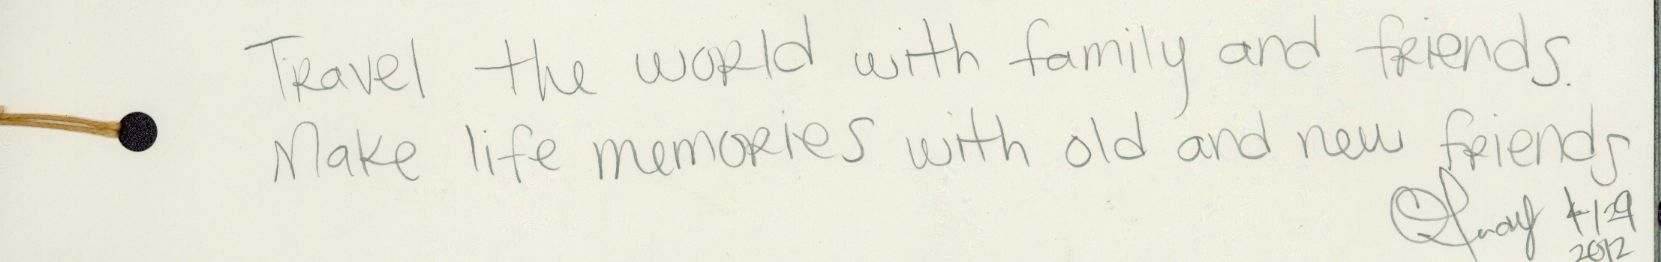 Travel the world with family and friends.
Make life memories with old and new friends
4/29
2012